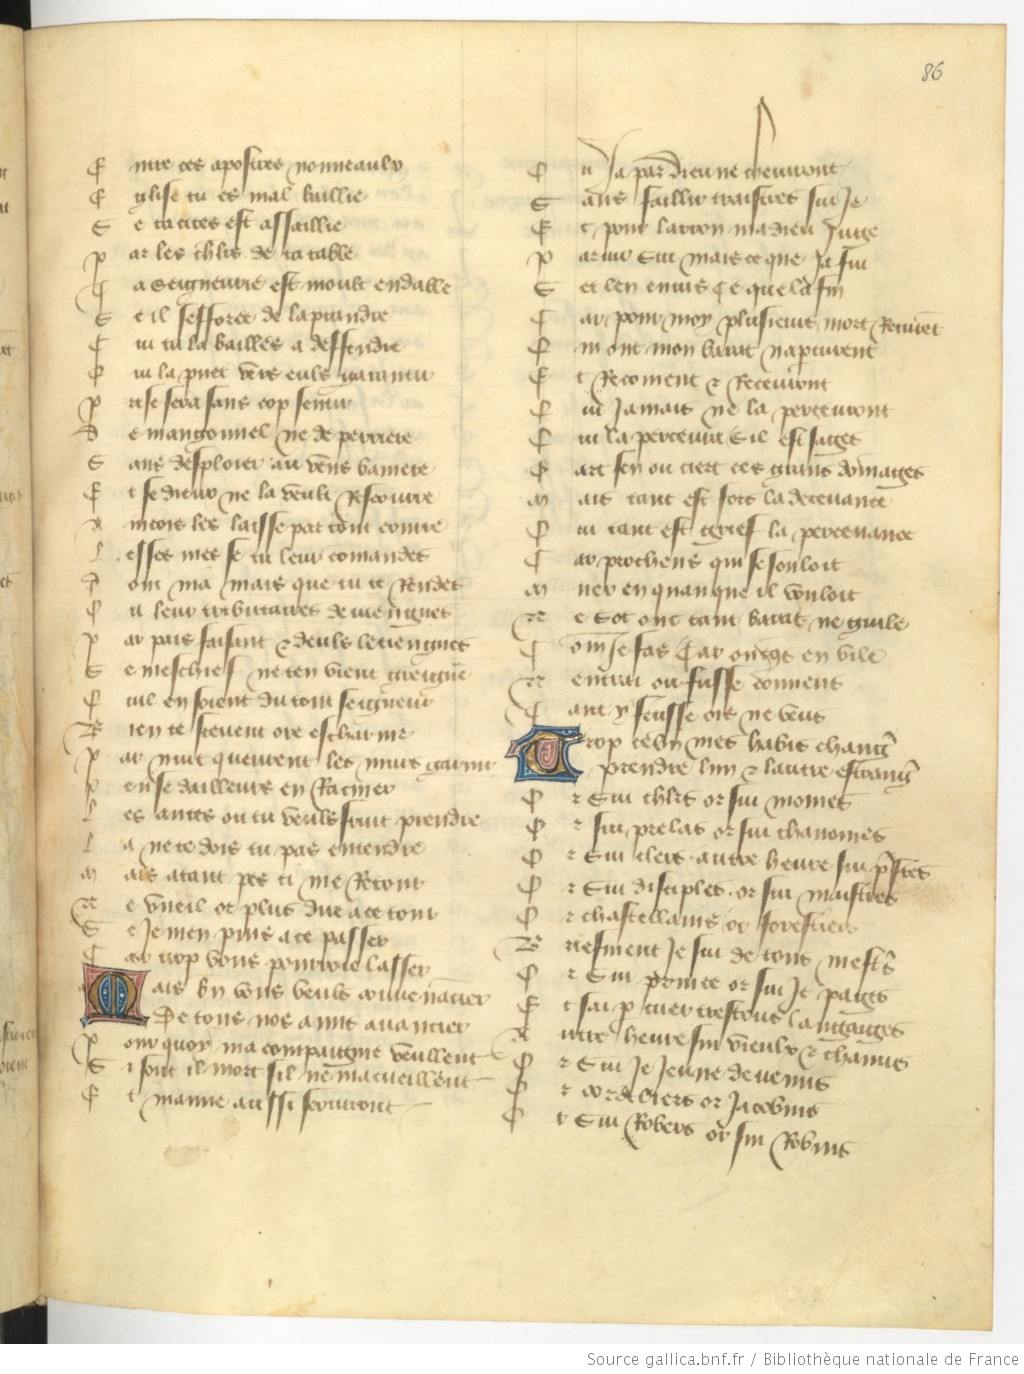 86
Entre ces apostres nouueaulx
Eglise tu es mal baillie
Se ta cites est assaillie
Par les chlrs de ta table
Ta seigneurie est moult endable
Se il sefforce de la prandre
Cui tu la bailles a deffendre
Qui la puet vers euls garantir
Prise sera sans cop sentir
De mangonnel ne de perriere
Sans desploier au vens baniere
Et se dieux ne la veult rescourre
Aincois les laisse par tout courre
Lesses mes se tu leur comandes
Dont ma mais que tu te rendes
Ou leur tributaires deuiengnes
Par pais faisant et deuls le tiengnes
Se meschief ne ten vient greigneur
Quil en soient du tout seigneur
Bien te sceuent ore escharnir
Par iour queurent les murs garnir
Par nuit
Pense dailleurs en raciner
Les antes ou tu veuls fruit prendre
La ne te dois tu pas entendre
Mais atant pes ci me retour
Ne vueil or plus dire a ce tour
Se je men puis a ce passer
Car trop vous pourroie lasser
Mais bn vous veuls conuenancier
De tous vos amis auancier
Pour quoy ma compaignie veullent
Si sont il mort sil ne macueillent
Et mamie aussi seruiront
Ou ja par dieu ne cheuiront
Sans faillir traistres sui je
Et pour larron ma dieu jugie
Pariur sui mais ce que ja fin
Set len enuis ce que la fin
Car pour moy plusieurs mort recuret
Qui ont mon barat napercurent
Et recoiuent et receuront
Qui jamais ne la perceuront
Qui la perceura sil est sages
Gart sen ou ciert ces grans domages
Mais tant est fors la deceuance
Que tant est grief la perceuance
Car protheus qui se souloit
Muer en quanque il vouloit
Ne sot onc tant barat ne guile
Com je fas car onqs en vile
Nentrai ou fusse congneus
Tant y feusse ois ne veus
Trop scey bn mes habis changr
Prendre lun et lautre estrangr
Or sui chlrs or sui moines
Or sui prelas or sui chanoines
Or sui clers autre heure sui prestres
Or sui disciples or sui maistres
Or chastellains or forestiers
Briefment je sui de tous mestrs
Or sui prince or sui je pages
Et sai p cuer trestous langaiges
Autre heure sui vieulx et chanus
Or sui je jeune deuenus
Or cordeliers or jacobins
Or sui robers or sui robins
Source gallica.bnf.fr / Bibliothèque nationale de France